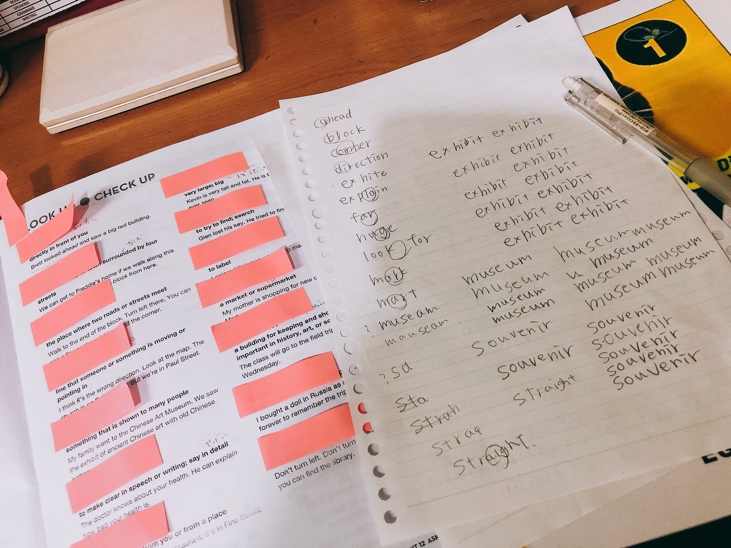 LOOK UP CHECK UP
directly in front of you
Brett looked ahead and saw a big red building.
surrounded by four
streets
We can get to Freddie's home if we walk along this
block from here.
the place where two roads or streets meet
Walk to the end of the block. Turn left there. You can
the corner.
line that someone or something is moving or
pointing in
I think it's the wrong direction. Look at the map. The
we're in Paul Street.
something that is shown to many people
My family went to the Chinese Art Museum. We saw
the exhibit of ancient Chinese art with old Chinese
to make clear in speech or writing; say in detail
The doctor knows about your health. He can explain
how bad your health is.
from you or from a place
very large; big
Kevin is very tall and fat. He is
to try to find; search
Glen lost his key. He tried to fin
to label
a market or supermarket
My mother is shopping for new
a building for keeping and sho
important in history, art, or sc
The class will go to the field trip
Wednesday.
I bought a doll in Russia as
forever to remember the trip
Don't turn left. Don't turn
you can find the library.
ahead
block
corner
direction
exhite
explain
far
huge
look for
mark
mart
? museam
mausear
? sd
sta
strah
straq
straight.
exhibit exhibit
exhibit exhibit
exhibit exhibit
exhibit exhibit
exhibit exhibit
exhibit exhibit
museum museum museum
museum museum
museum museum museum
museum museum museum
souvenir souvenir
souvenir souvenir
souvenir
straight souvenir
souvenir
1